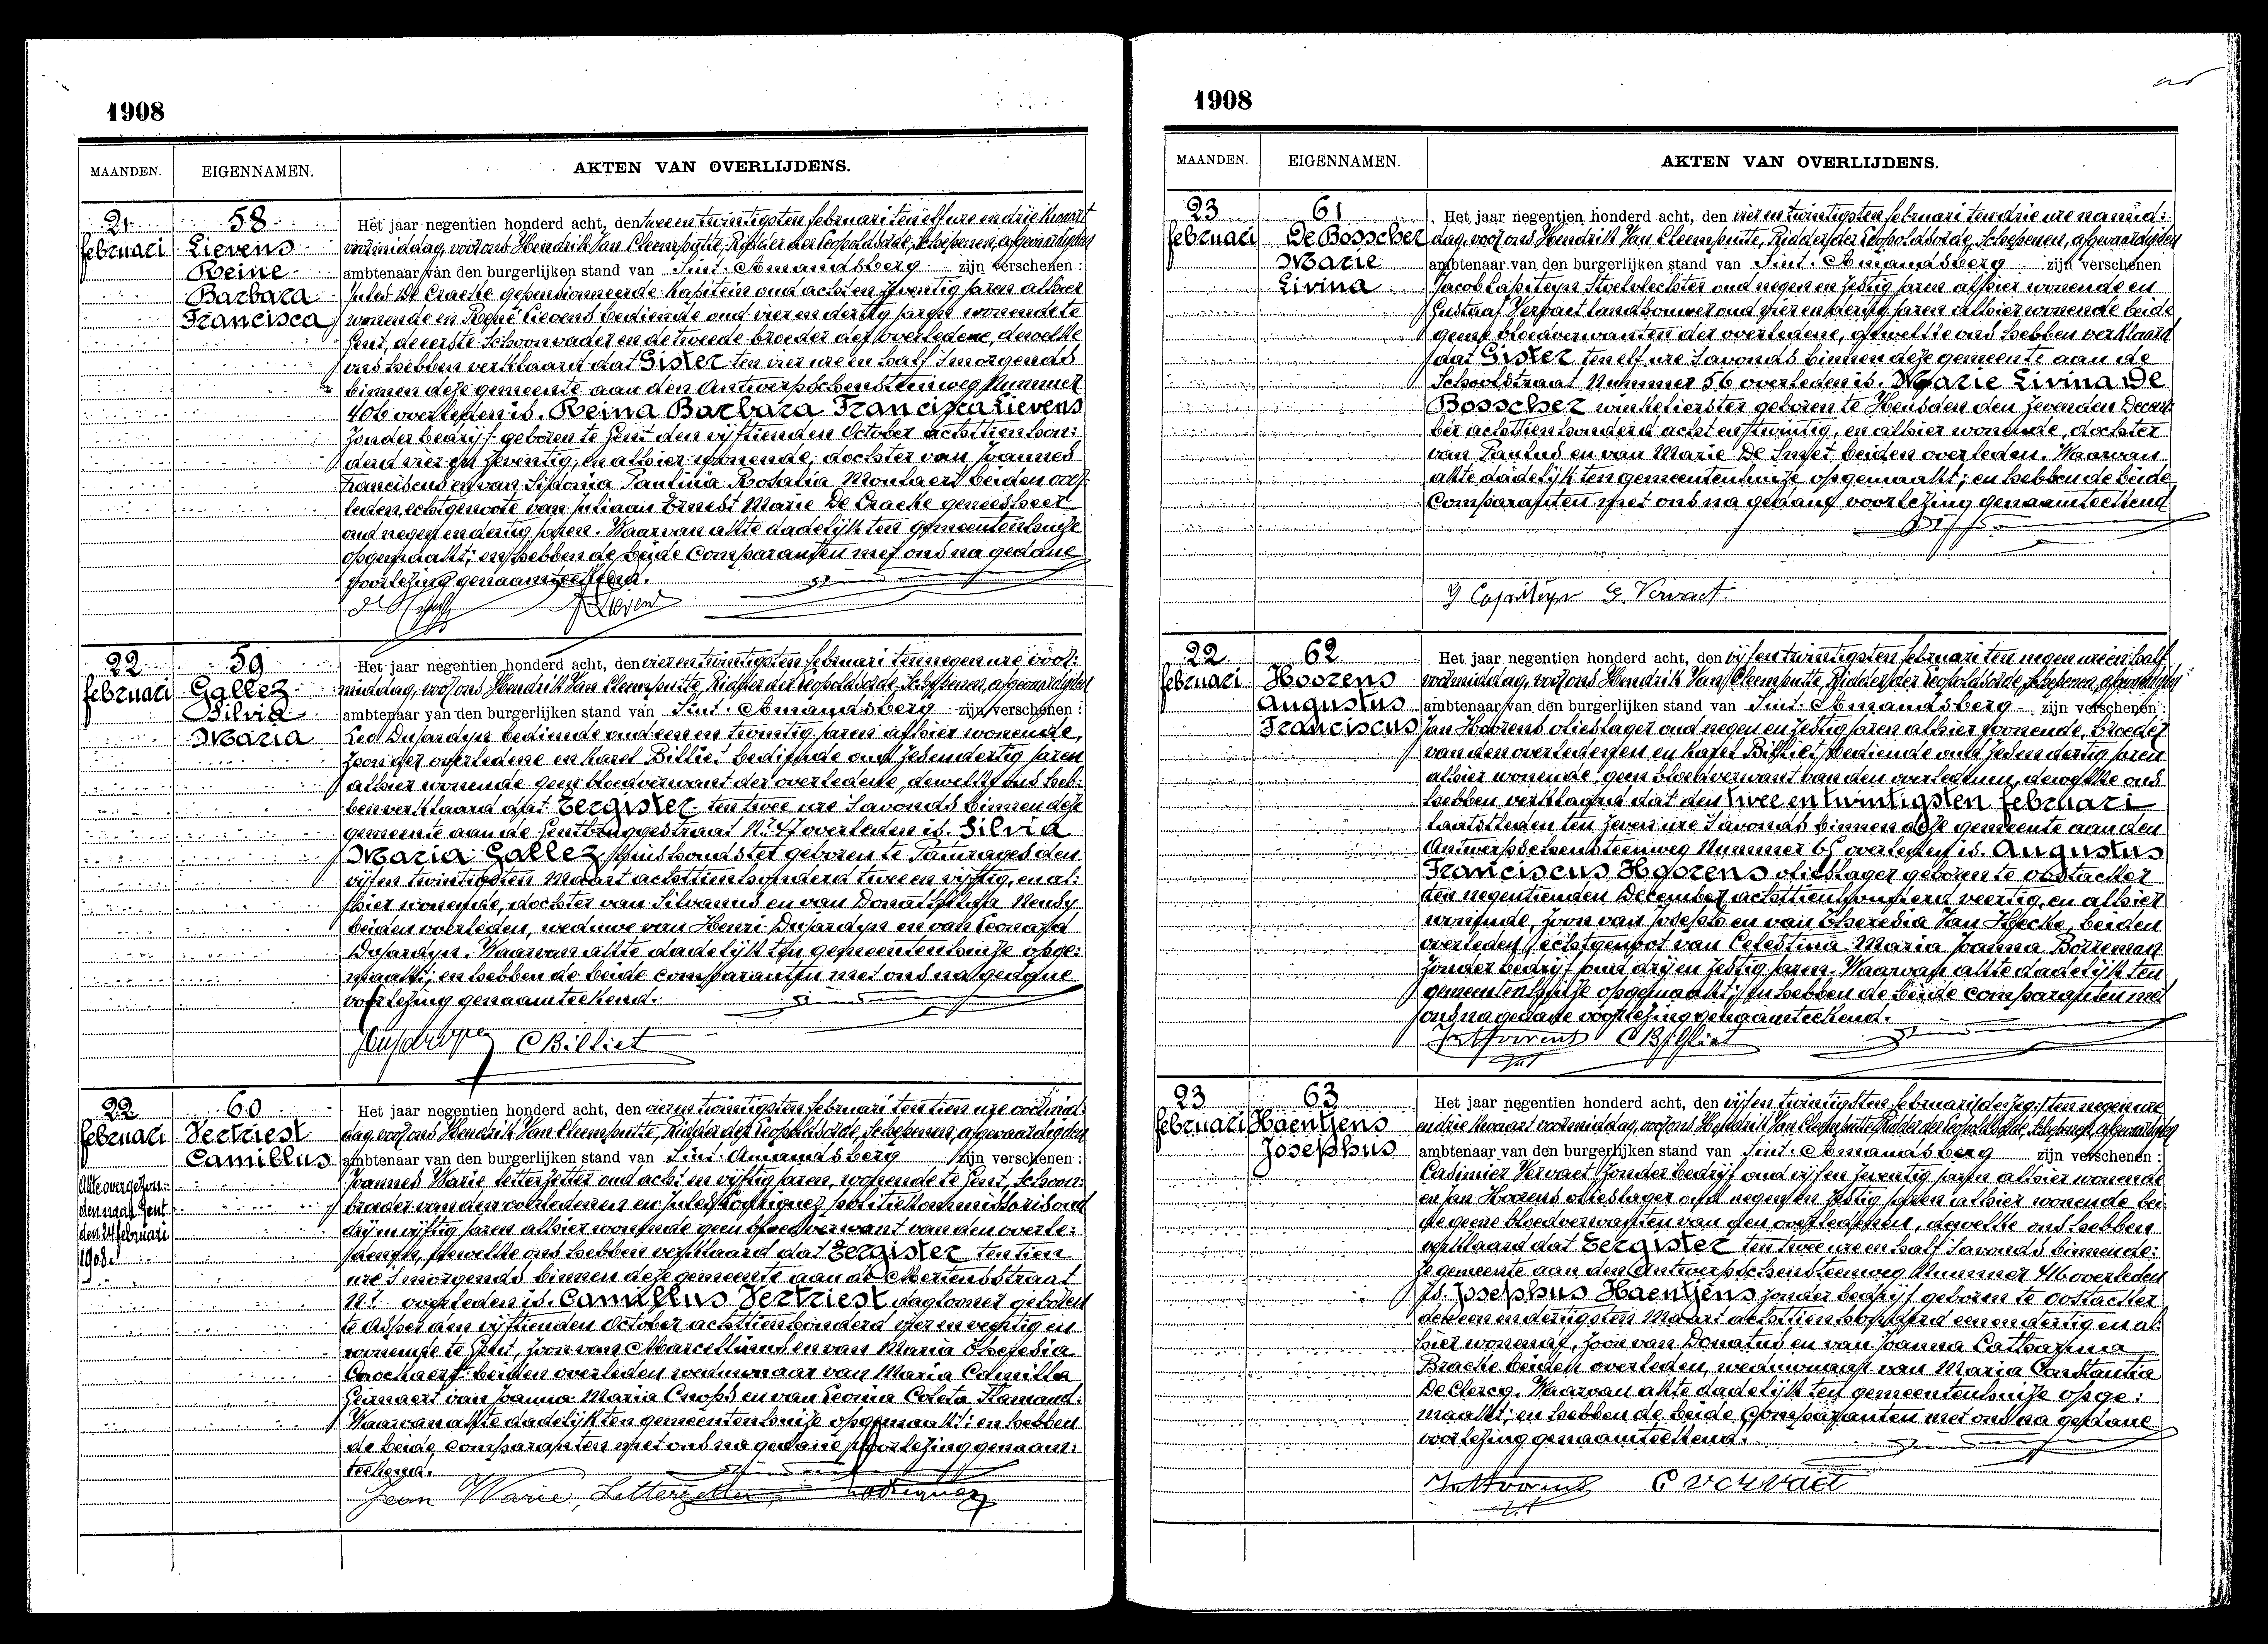 1908
MAANDEN. EIGENNAMEN. AKTEN VAN OVERLIJDENS.
21 februari
58
Lievens
Reine
Barbara
Francisca
Het jaar negentien honderd acht, den twee en twintigsten februari ten elf ure en drie kwart
voormiddag, voor ons Hendrik Van Cleemputte, Ridder der Leopoldsorde, Schepenen, afgevaardigden
ambtenaar van den burgerlijken stand van Sint-Amandsberg zijn verschenen:
Jules De Craeke gepensionneerde kapitein oud acht en zeventig jaren alhier
wonende en René Lievens bediende oud vier en dertig jaren wonende te
Gent, de eerste schoonvader en de tweede broeder der overledene, dewelke
ons hebben verklaard dat Gister ten vier ure en half 's morgends
binnen deze gemeente aan den Antwerpschensteenweg Nummer
406 overleden is. Reina Barbara Francisca Lievens
zonder bedrijf geboren te Gent den vijftienden October achttien hon:
derd vier en zeventig, en alhier wonende, dochter van Joannes
Franciscus en van Sidonia Paulina Rosalia Montaert beiden over:
leden, echtgenoote van Juliaan Ernest Marie De Craeke geneesheer
oud negen en dertig jaren. Waarvan akte dadelijk ten gemeentenhuize
opgemaakt; en hebben de beide comparanten met ons na gedane
voorlezing genaamteekend.
Lievens
22 februari
59
Gallez
Silvia
Maria
Het jaar negentien honderd acht, den vier en twintigsten februari ten negen ure voor:
middag, voor ons Hendrik Van Cleemputte, Ridder der Leopoldsorde, Schepenen, afgevaardigden
ambtenaar van den burgerlijken stand van Sint-Amandsberg zijn verschenen:
Leo Dujardyn bediende oud een en twintig jaren alhier wonende,
zoon der overledene en Karel Billiet bediende oud zes en dertig jaren
alhier wonende geen bloedverwant der overledene, dewelke ons heb:
ben verklaard dat Eergister ten twee ure 's avonds binnen deze
gemeente aan de Gentbruggestraat N.º 47 overleden is. Silvia
Maria Gallez huishoudster geboren te Tamrages den
vijf en twintigsten Maart achttien honderd twee en vijftig, en al:
hier wonende, dochter van Silvanus en van Donatilhilda Mendy
beiden overleden, weduwe van Henri Dujardyn en van Leonard
Dujardyn. Waarvan akte dadelijk ten gemeentenhuize opge:
maakt; en hebben de beide comparanten met ons na gedane
voorlezing genaamteekend.
Dujardyn C Billiet
22 februari
60
Vertriest
Camillus
Akte overgezon:
den naar Gent
den 24 februari
1908.
Het jaar negentien honderd acht, den vier en twintigsten februari ten tien ure voormid:
dag, voor ons Hendrik Van Cleemputte, Ridder der Leopoldsorde, Schepenen, afgevaardigden
ambtenaar van den burgerlijken stand van Sint-Amandsberg zijn verschenen:
Joannes Warie letterzetter oud acht en vijftig jaren, wonende te Gent, schoon:
broeder van den overledenen en Jules Rodriguez politiekommissaris oud
drij en vijftig jaren alhier wonende geen bloedverwant van den overle:
denen, dewelke ons hebben verklaard dat Eergister ten tien
ure 's morgends binnen deze gemeente aan de Mertensstraat
N.º overleden is. Camillus Vertriest daglooner geboren
te Asper den vijftienden October achttien honderd vier en veertig en
wonende te Gent, zoon van Marcellinus en van Maria Theresia
Crochaert beiden overleden weduwnaar van Maria Camilla
Gernaert van Joanna Maria Cnops en van Leonia Coleta Flamand.
Waarvan akte dadelijk ten gemeentenhuize opgemaakt; en hebben
de beide comparanten met ons na gedane voorlezing genaam:
teekend.
Jean Warie, Letterzetter Rodriguez
1908
MAANDEN. EIGENNAMEN. AKTEN VAN OVERLIJDENS.
23 februari
61
De Bosscher
Marie
Livina
Het jaar negentien honderd acht, den vier en twintigsten februari ten drie ure namid:
dag, voor ons Hendrik Van Cleemputte, Ridder der Leopoldsorde, Schepenen, afgevaardigden
ambtenaar van den burgerlijken stand van Sint-Amandsberg zijn verschenen
Jacob Capiteyn stoelvlechter oud negen en zestig jaren alhier wonende en
Gustaaf Vervaet landbouwer oud vier en dertig jaren alhier wonende beide
geene bloedverwanten der overledene, dewelke ons hebben verklaard
dat Gister ten elf ure 's avonds binnen deze gemeente aan de
Schoolstraat Nummer 56 overleden is. Marie Livina De
Bosscher winkelierster geboren te Heusden den zevenden Decem
ber achttien honderd acht en twintig, en alhier wonende, dochter
van Paulus en van Marie De Smet beiden overleden. Waarvan
akte dadelijk ten gemeentenhuize opgemaakt; en hebben de beide
comparanten met ons na gedane voorlezing genaamteekend
J Capiteyn G. Vervaet
22 februari
62
Hoorens
Augustus
Franciscus
Het jaar negentien honderd acht, den vijf en twintigsten februari ten negen ure en half
voormiddag, voor ons Hendrik Van Cleemputte, Ridder der Leopoldsorde, Schepenen, afgevaardigden
ambtenaar van den burgerlijken stand van Sint-Amandsberg zijn verschenen:
Jan Hoorens olieslager oud negen en zestig jaren alhier wonende, broeder
van den overledenen en Karel Billiet bediende oud zes en dertig jaren
alhier wonende, geen bloedverwant van den overledenen, dewelke ons
hebben verklaard dat den twee en twintigsten februari
laatstleden ten zeven ure 's avonds binnen deze gemeente aan den
Antwerpschensteenweg Nummer 65 overleden is. Augustus
Franciscus Hoorens olieslager geboren te Oostacker
den negentienden December achttien honderd veertig, en alhier
wonende, zoon van Joseph en van Theresia Van Hecke, beiden
overleden echtgenoot van Celestina Maria Joanna Borreman
zonder bedrijf oud drij en zestig jaren. Waarvan akte dadelijk ten
gemeentenhuize opgemaakt; en hebben de beide comparanten met
ons na gedane voorlezing genaamteekend.
Jan Hoorens C Billiet
23 februari
63
Haentjens
Josephus
Het jaar negentien honderd acht, den vijf en twintigsten februari ten negen ure
en drie kwaart voormiddag, voor ons Hendrik Van Cleemputte Ridder der Leopoldsorde, Schepenen, afgevaardigden
ambtenaar van den burgerlijken stand van Sint-Amandsberg zijn verschenen:
Casimier Vervaet zonder bedrijf oud vijf en zeventig jaren alhier wonende
en Jan Hoorens olieslager oud negen en zestig jaren alhier wonende bei
de geene bloedverwanten van den overledenen, dewelke ons hebben
verklaard dat Eergister ten twee ure en half 's avonds binnen de:
ze gemeente aan den Antwerpschensteenweg Nummer 416 overleden
is. Josephus Haentjens zonder bedrijf geboren te Oostacker
den een en dertigsten Maart achttien honderd een en dertig en al:
hier wonende, zoon van Donatus en van Joanna Catharina
Bracke beiden overleden, weduwnaar van Maria Constantia
De Clercq. Waarvan akte dadelijk ten gemeentenhuize opge:
maakt; en hebben de beide comparanten met ons na gedane
voorlezing genaamteekend.
Jan Hoorens C Vervaet